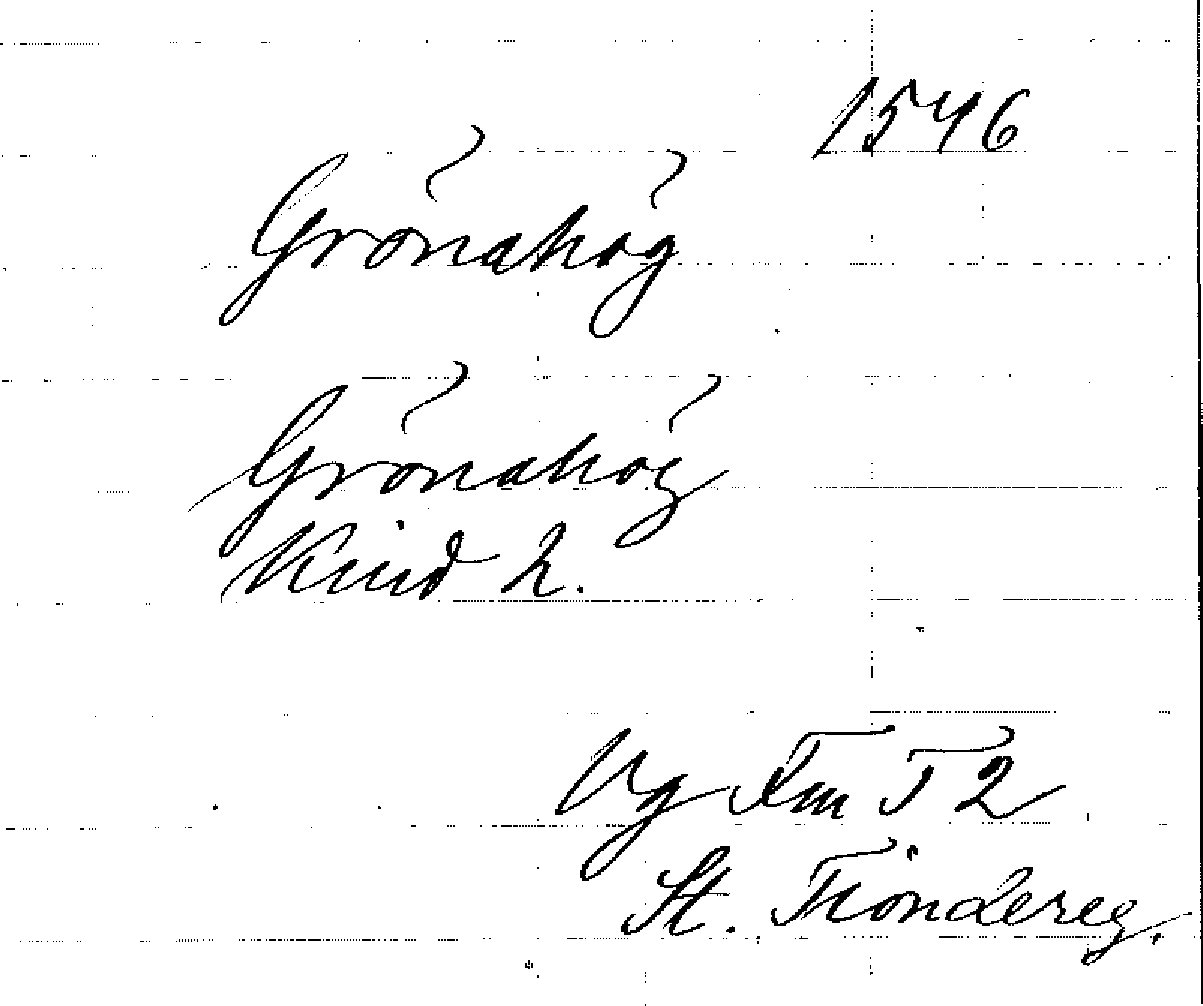 1546
Grönahög
Grönahög
Kind 2.
Vg Fm T 2
St. Tiondereg.